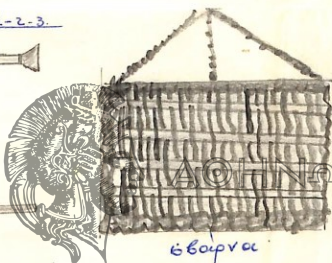 -2-3.
ΑΘΗΝΩ
σβαρνα